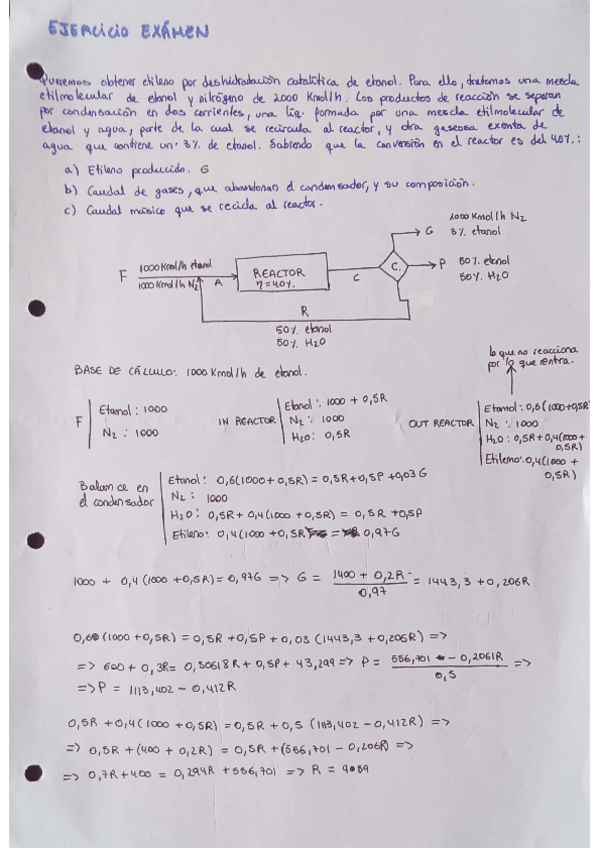 EJERCICIO EXÁMEN
Queremos obtener etileno por deshidratación catalítica de etanol. Para ello, tratamos una mezcla
etilmolecular de etanol y nitrógeno de 2000 Kmol/h. Los productos de reacción se separan
por condensación en dos corrientes, una líq. formada por una mezcla etilmolecular de
etanol y agua, parte de la cual se recircula al reactor, y otra gaseosa exenta de
agua que contiene un 3% de etanol. Sabiendo que la conversión en el reactor es del 40%.:
a) Etileno producido. G
b) Caudal de gases, que abandonan el condensador, y su composición.
c) Caudal másico que se recicla al reactor.
1000 Kmol/h N2
G 3% etanol
F 1000 Kmol/h etanol
1000 Kmol/h N2
A
REACTOR
η=40%
C
C.
P 50% etanol
50% H2O
R
50% etanol
50% H2O
lo que no reacciona
por lo que entra.
BASE DE CÁLCULO: 1000 Kmol/h de etanol.
F
Etanol: 1000
N2: 1000
IN REACTOR
Etanol: 1000 + 0,5R
N2: 1000
H2O: 0,5R
OUT REACTOR
Etanol: 0,6(1000+0,5R)
N2: 1000
H2O: 0,5R+0,4(1000+
0,5R)
Etileno: 0,4(1000+
0,5R)
Balance en
el condensador
Etanol: 0,6(1000+0,5R) = 0,5R+0,5P+0,03G
N2: 1000
H2O: 0,5R+0,4(1000+0,5R) = 0,5R+0,5P
Etileno: 0,4(1000+0,5R = 0,97G
1000 + 0,4(1000+0,5R) = 0,97G => G = 1400 + 0,2R / 0,97 = 1443,3 + 0,206R
0,60(1000+0,5R) = 0,5R+0,5P+0,03(1443,3+0,206R) =>
=> 600 + 0,3R = 0,50618R + 0,5P + 43,299 => P = 556,701 - 0,2061R / 0,5 =>
=> P = 1113,402 - 0,412R
0,5R + 0,4(1000+0,5R) = 0,5R + 0,5(1113,402 - 0,412R) =>
=> 0,5R + (400 + 0,2R) = 0,5R + (556,701 - 0,206R) =>
=> 0,7R + 400 = 0,294R + 556,701 => R =